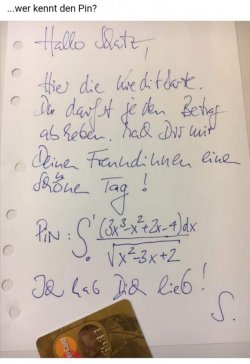 ...wer kennt den Pin?
Hallo Schatz,
Hier die Kreditkarte.
Du darfst jeden Betrag
abheben. Mach Dir mit
Deinen Freundinnen eine
schöne Tag!
PIN: ∫₀¹ (3x³-x²+2x-4)dx / √(x²-3x+2)
Ich hab Dich lieb!
S.